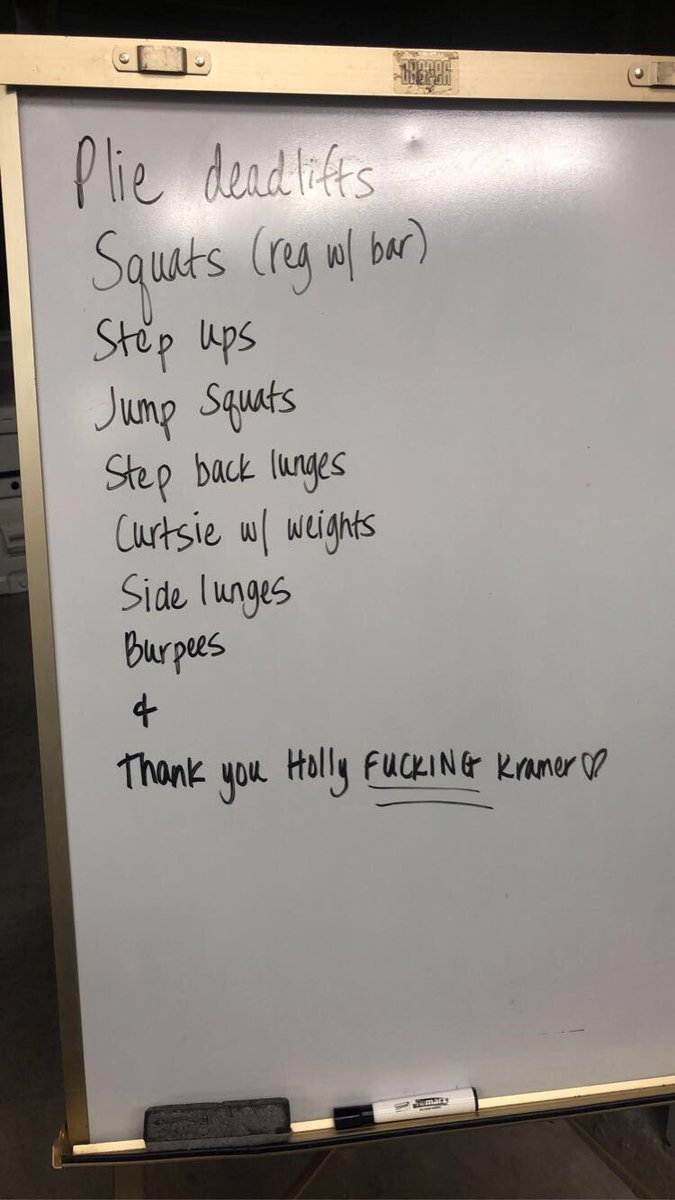 Plie deadlifts
Squats (reg w/ bar)
Step ups
Jump Squats
Step back lunges
Curtsie w/ weights
Side lunges
Burpees
&
Thank you Holly FUCKING Kramer♡